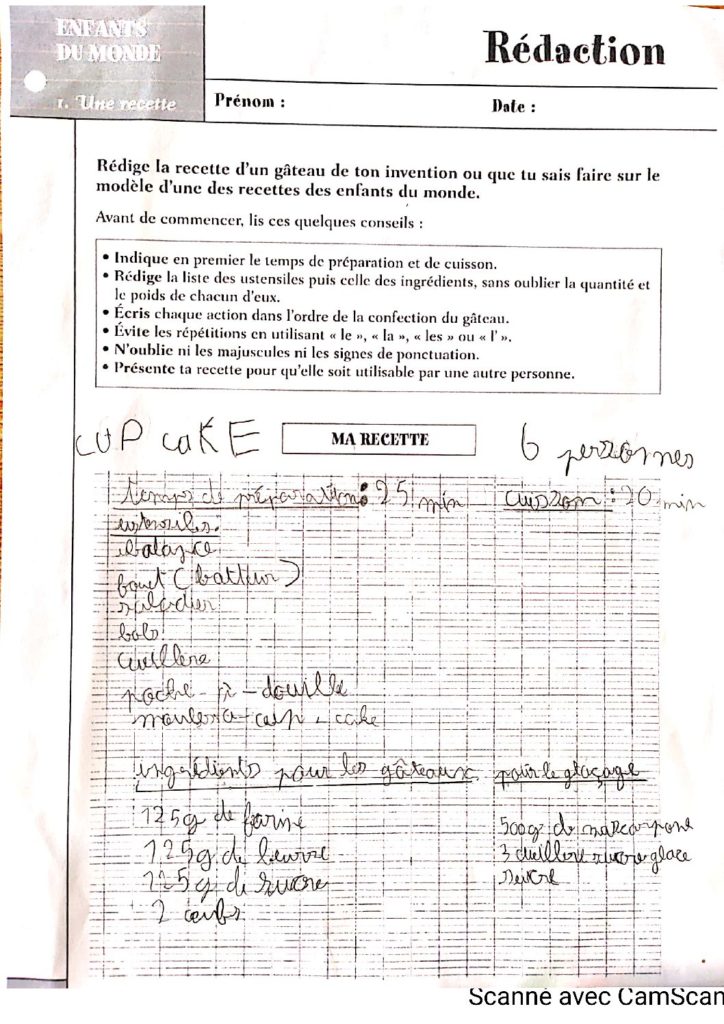 ENFANTS
DU MONDE
1. Une recette
Rédaction
Prénom :
Date :
Rédige la recette d'un gâteau de ton invention ou que tu sais faire sur le
modèle d'une des recettes des enfants du monde.
Avant de commencer, lis ces quelques conseils :
• Indique en premier le temps de préparation et de cuisson.
• Rédige la liste des ustensiles puis celle des ingrédients, sans oublier la quantité et
le poids de chacun d'eux.
• Écris chaque action dans l'ordre de la confection du gâteau.
• Évite les répétitions en utilisant « le », « la », « les » ou « l' ».
• N'oublie ni les majuscules ni les signes de ponctuation.
• Présente ta recette pour qu'elle soit utilisable par une autre personne.
CUP CAKE
MA RECETTE
6 personnes
temps de préparation : 25 min cuisson : 20 min
ustensiles :
balance
fouet (batteur)
saladier
bols
cuillère
poche - à - douille
moules à - cup - cake
ingrédients pour les gâteaux pour le glaçage
125g de farine
125g de beurre
125g de sucre
2 œufs
500g de mascarpone
3 cuillère sucre glace
sucre
Scanné avec CamScan